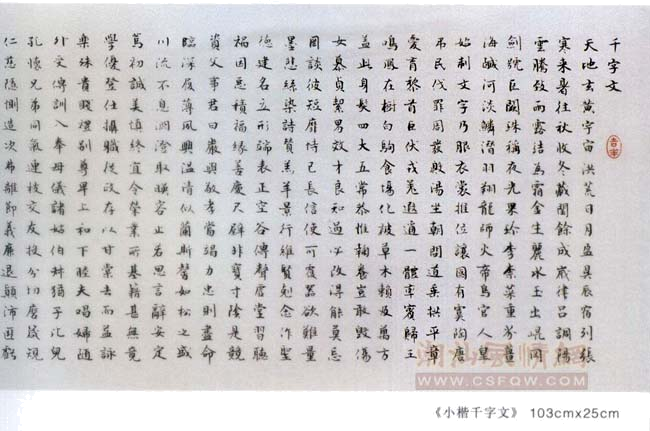 千字文
天地玄黃宇宙洪荒日月盈昃辰宿列張
寒來暑往秋收冬藏閏餘成歲律呂調陽
雲騰致雨露結為霜金生麗水玉出崐岡
劍號巨闕珠稱夜光果珍李柰菜重芥薑
海鹹河淡鱗潛羽翔龍師火帝鳥官人皇
始制文字乃服衣裳推位讓國有虞陶唐
弔民伐罪周發殷湯坐朝問道垂拱平章
愛育黎首臣伏戎羌遐邇一體率賓歸王
鳴鳳在樹白駒食場化被草木賴及萬方
蓋此身髮四大五常恭惟鞠養豈敢毀傷
女慕貞絜男效才良知過必改得能莫忘
罔談彼短靡恃己長信使可覆器欲難量
墨悲絲染詩讚羔羊景行維賢剋念作聖
德建名立形端表正空谷傳聲虛堂習聽
禍因惡積福緣善慶尺璧非寶寸陰是競
資父事君曰嚴與敬孝當竭力忠則盡命
臨深履薄夙興溫凊似蘭斯馨如松之盛
川流不息淵澄取映容止若思言辭安定
篤初誠美慎終宜令榮業所基籍甚無竟
學優登仕攝職從政存以甘棠去而益詠
樂殊貴賤禮別尊卑上和下睦夫唱婦隨
外受傅訓入奉母儀諸姑伯叔猶子比兒
孔懷兄弟同氣連枝交友投分切磨箴規
仁慈隱惻造次弗離節義廉退顛沛匪虧
潮汕风情網
WWW.CSFQW.COM
《小楷千字文》 103cmx25cm